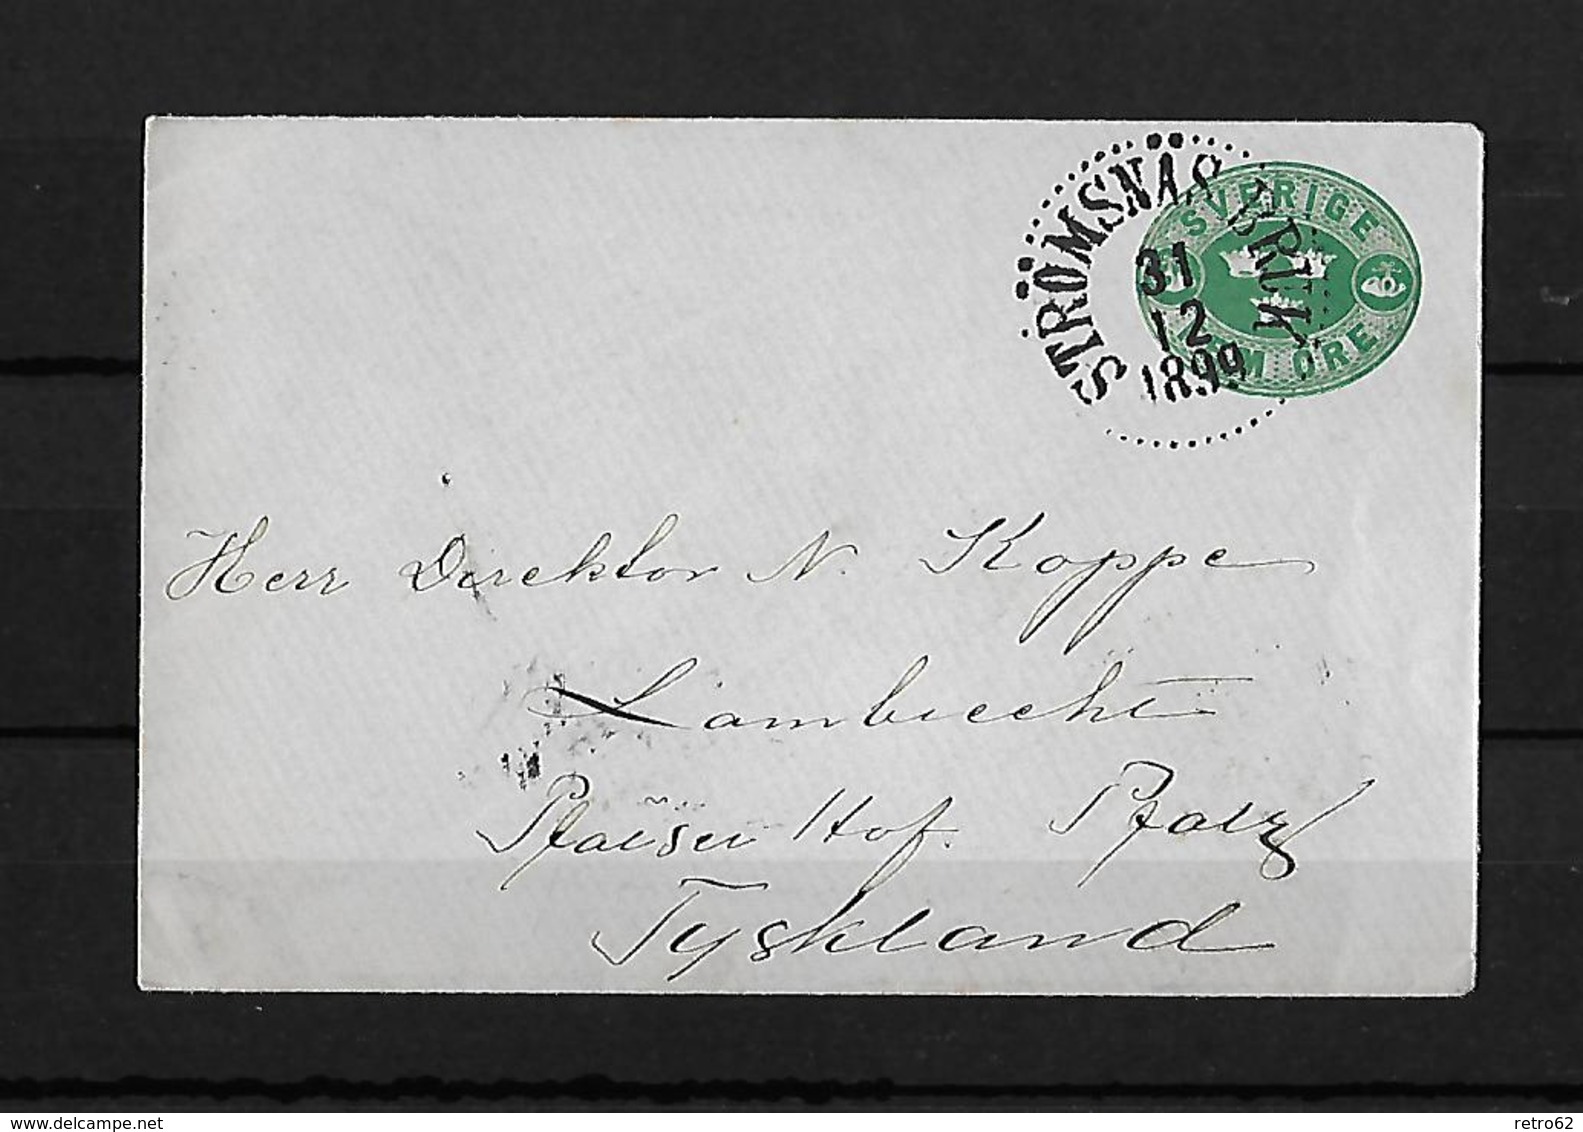 STRÖMSNÄSBRUK
31
12
1899
SVERIGE
FEM ÖRE
Herr Direktor N. Koppe
Lambrecht
Pfälzer Hof. Pfalz
Tyskland
delcampe.net
retro62